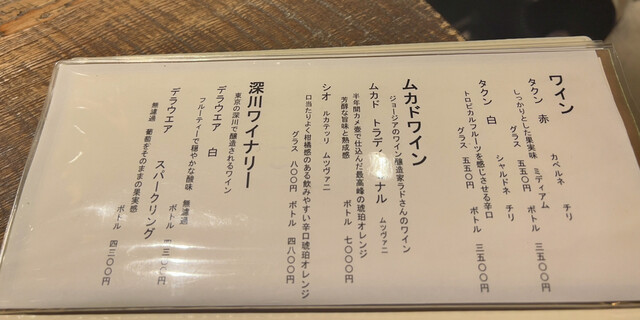 ワイン
タクン 赤 カベルネ チリ
しっかりとした果実味 ミディアム
グラス 五五〇円 ボトル 三五〇〇円
タクン 白 シャルドネ チリ
トロピカルフルーツを感じさせる辛口
グラス 五五〇円 ボトル 三五〇〇円
ムカドワイン
ジョージアのワイン醸造家ラドさんのワイン
ムカド トラディショナル ムツヴァニ
半年間カメ壺で仕込んだ最高峰の琥珀オレンジ
芳醇な旨味と熟成感 ボトル 七〇〇〇円
シオ ルカテッリ ムツヴァニ
口当たりよく柑橘感のある飲みやすい辛口琥珀オレンジ
グラス 八〇〇円 ボトル 四八〇〇円
深川ワイナリー
東京の深川で醸造されるワイン
デラウエア 白 無濾過
フルーティーで穏やかな酸味 ボトル 〇〇円
デラウエア スパークリング
無濾過 葡萄をそのままの果実感
ボトル 四二〇〇円